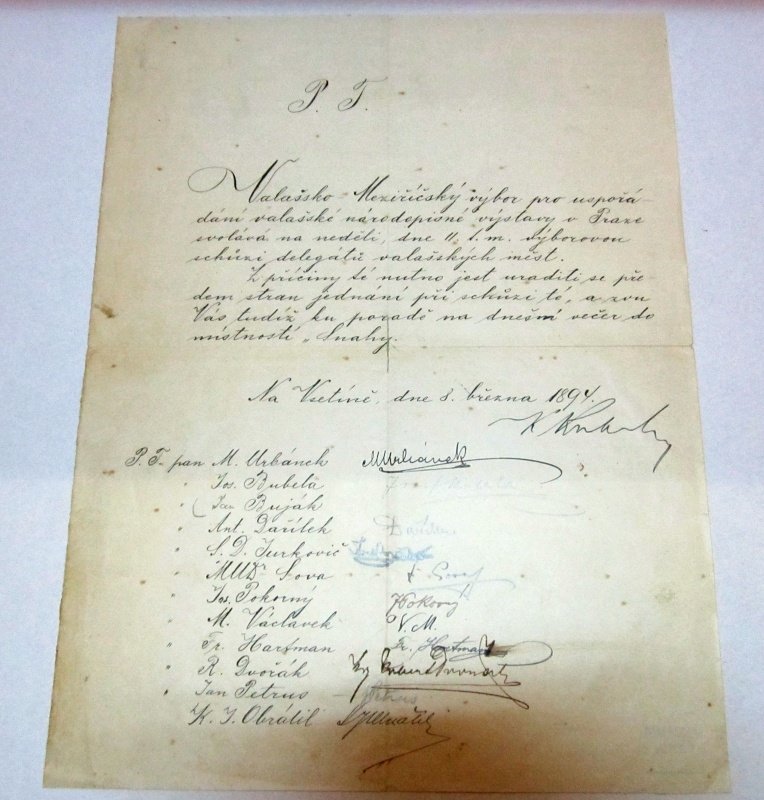 P. T.
Valašsko-Meziříčský výbor pro uspořá-
dání valašské narodopisné výstavy v Praze
svolává na neděli, dne 11. t. m. výborovou
schůzi delegátů valašských měst.
Z příčiny té nutno jest uraditi se pře-
dem stran jednání při schůzi té, a zvu
Vás tudíž ku poradě na dnešní večer do
místností „Snahy.
Na Vsetíně, dne 8. března 1894.
P. T. pan M. Urbánek MUrbánek
" Jos. Bubela
" Jan Buják
" Ant. Dařílek
" S. D. Jurkovič
" MUDr Sova
" Jos. Pokorný JPokorný
" M. Václavek V. M.
" Fr. Hartman Fr. Hartman
" R. Dvořák
" Jan Petrus
K. J. Obrátil